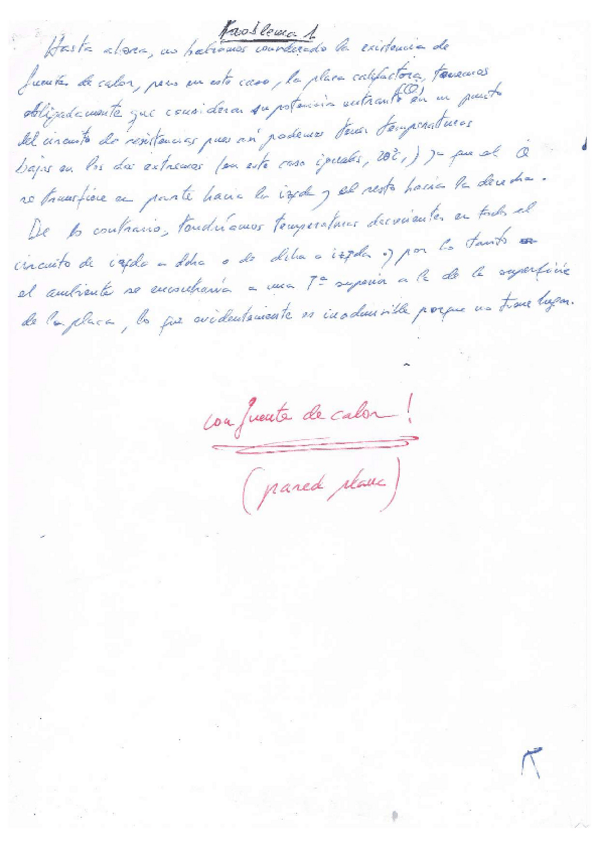 Problema 1
Hasta ahora, no habíamos considerado la existencia de
fuentes de calor, pero en este caso, la placa calefactora, tenemos
obligadamente que considerar su potencia entrante (Q̇) en un punto
del circuito de resistencias pues así podemos tener temperaturas
bajas en los dos extremos (en este caso iguales, 20ºC,) ya que el Q̇
se transfiere en parte hacia la izqda y el resto hacia la derecha.
De lo contrario, tendríamos temperaturas decrecientes en todo el
circuito de izqda a dcha o de dcha a izqda y por lo tanto
el ambiente se encontraría a una Tª superior a la de la superficie
de la placa, lo que evidentemente es inadmisible porque no tiene lugar.
con fuente de calor!
(pared plana)